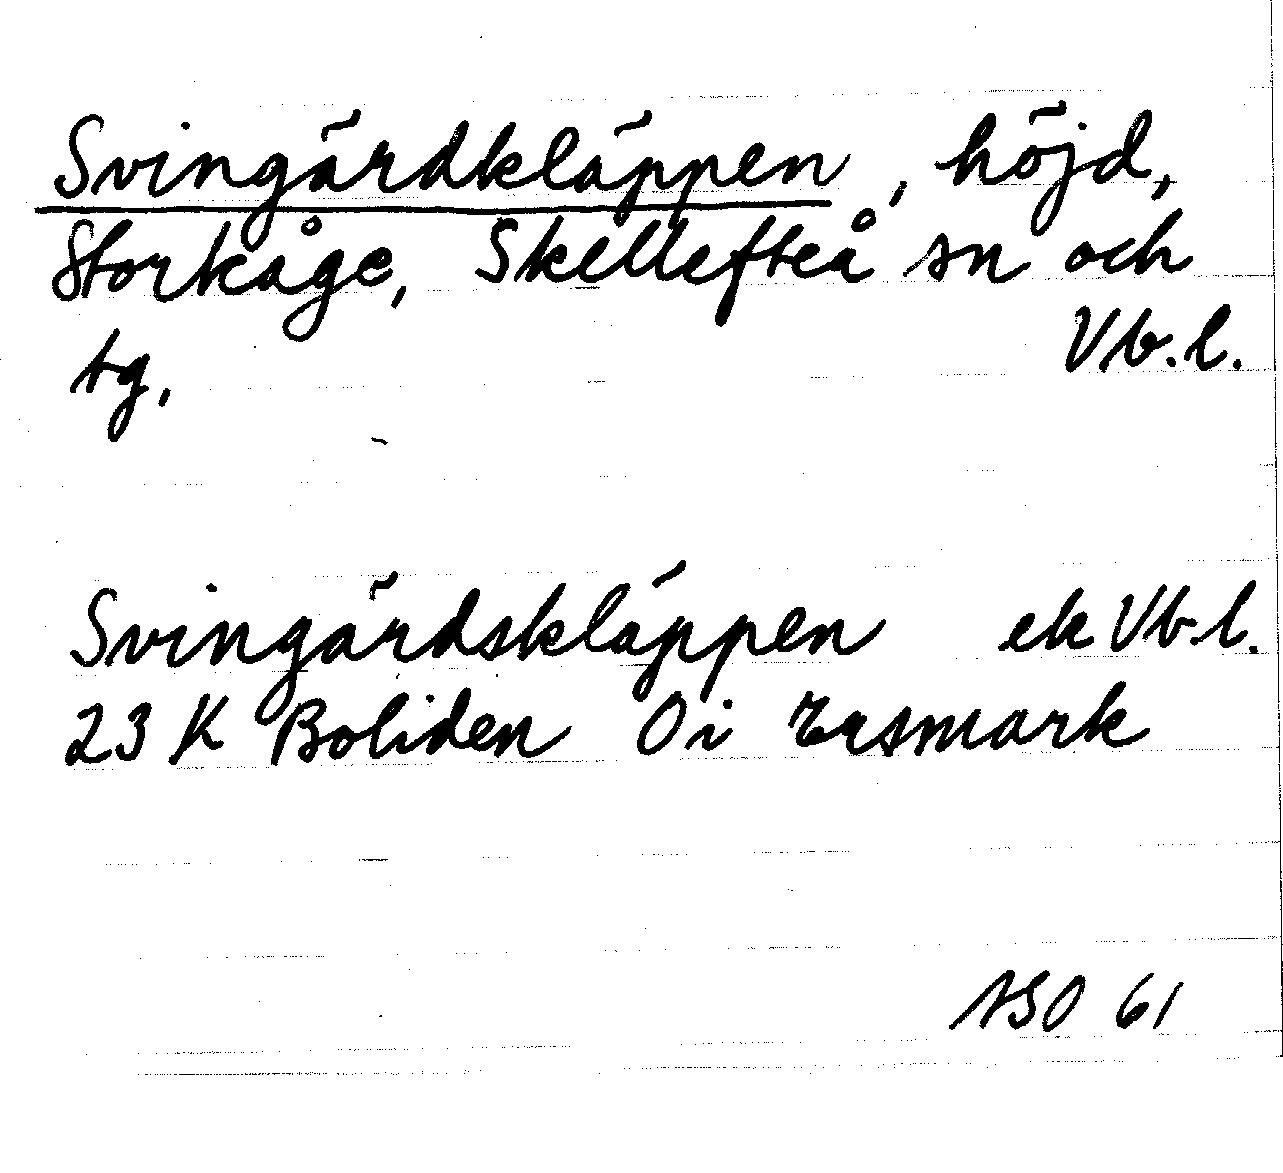 Svingärdkläppen, höjd,
Storkåge, Skellefteå sn och
tg, Vb.l.
Svingärdskläppen ek Vb.l.
23 K Boliden Öi Ersmark
ASO 61